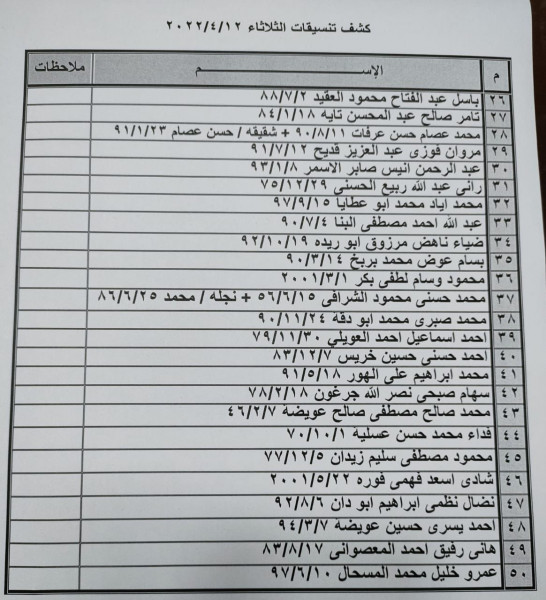 كشف تنسيقات الثلاثاء ٢٠٢٢/٤/١٢
م الإســـــم ملاحظات
٢٦ باسل عبد الفتاح محمود العقيد ٨٨/٧/٢
٢٧ تامر صالح عبد المحسن تايه ٨٤/١/١٨
٢٨ محمد عصام حسن عرفات ٩٠/٨/١١ + شقيقه / حسن عصام ٩١/١/٢٣
٢٩ مروان فوزى عبد العزيز قديح ٩١/٧/١٢
٣٠ عبد الرحمن انيس صابر الاسمر ٩٣/١/٨
٣١ رانى عبد الله ربيع الحسنى ٧٥/١٢/٢٩
٣٢ محمد اياد محمد ابو عطايا ٩٧/٩/١٥
٣٣ عبد الله احمد مصطفى البنا ٩٠/٧/٤
٣٤ ضياء ناهض مرزوق ابو ريده ٩٢/١٠/١٩
٣٥ بسام عوض محمد بربخ ٩٠/٣/١٤
٣٦ محمود وسام لطفى بكر ٢٠٠١/٣/١
٣٧ محمد حسنى محمود الشرافى ٥٦/٦/١٥ + نجله / محمد ٨٦/٦/٢٥
٣٨ محمد صبرى محمد ابو دقة ٩٠/١١/٢٤
٣٩ احمد اسماعيل احمد العويلي ٧٩/١١/٣٠
٤٠ احمد حسنى حسين خريس ٨٣/١٢/٧
٤١ محمد ابراهيم على الهور ٩١/٥/١٨
٤٢ سهام صبحى نصر الله جرغون ٧٨/٢/١٨
٤٣ محمد صالح مصطفى صالح عويضة ٤٦/٢/٧
٤٤ فداء محمد حسن عسلية ٧٠/١٠/١
٤٥ محمود مصطفى سليم زيدان ٧٧/١٢/٥
٤٦ شادى اسعد فهمى فوره ٢٠٠١/٥/٢٢
٤٧ نضال نظمى ابراهيم ابو دان ٩٢/٨/٦
٤٨ احمد يسرى حسين عويضة ٩٤/٣/٧
٤٩ هانى رفيق احمد المعصوانى ٨٣/٨/١٧
٥٠ عمرو خليل محمد المسحال ٩٧/٦/١٠